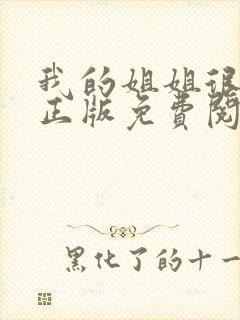 我的姐姐很
正版免费阅
黑化了的十一